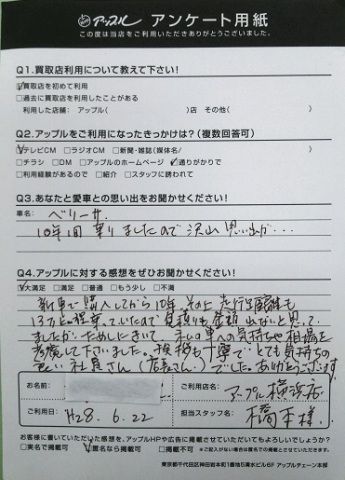 アップル アンケート用紙
この度は当店をご利用いただきありがとうございました。
Q1.買取店利用について教えて下さい!
☑買取店を初めて利用
□過去に買取店を利用したことがある
利用した店舗: アップル( )店 その他( )
Q2.アップルをご利用になったきっかけは?(複数回答可)
☑テレビCM □ラジオCM □新聞・雑誌(媒体名/ )
□チラシ □DM □アップルのホームページ ☑通りがかりで
□利用経験があるので □紹介 □スタッフに誘われて
Q3.あなたと愛車との思い出をお聞かせください!
車名: ベリーサ
10年間乗りましたので沢山思い出が...
Q4.アップルに対する感想をぜひお聞かせください!
☑大満足 □満足 □普通 □もう少し □不満
新車で購入してから10年、その上走行距離も
13万km程乗っていたので見積りも金額出ないと思って
ましたが、ためしにきいて 私の車への気持ちや相場を
考慮して下さいました。挨拶も丁寧で、とても気持ちの
良い社員さん(店長さん)でした。ありがとうございます。
お名前:
ご利用店名: アップル横浜店
ご利用日: H28. 6. 22
担当スタッフ名: 橋本様
お客様に書いていただいた感想を、アップルHPや広告に掲載させていただいてもよろしいでしょうか?
□実名で掲載可 ☑匿名なら掲載可 □掲載不可 ※ご記入がない場合は匿名での掲載とさせていただきます。
東京都千代田区神田岩本町1番地5清水ビル6F アップルチェーン本部